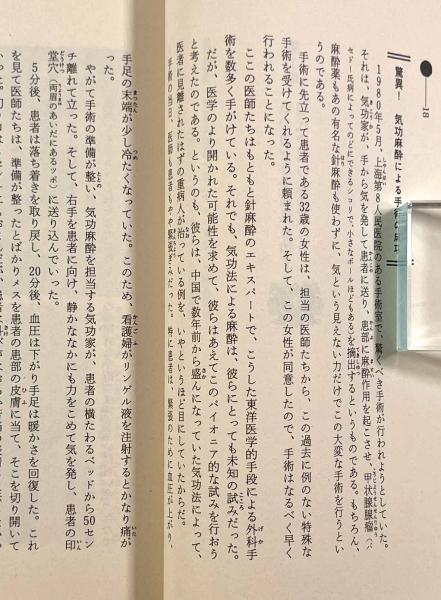 18
驚異! 気功麻酔による手術の成
1980年5月、上海第8人民医院のある手術室で、驚くべき手術が行われようとしていた。
それは、気功家が、手から気を発して患者に送り、患部に麻酔作用を起こさせ、甲状腺腺瘤(バ
セドー氏病によってのどにできるシコリで、小さなボールほどもある)を摘出するというものである。もちろん、
麻酔薬もあの有名な針麻酔も使わずに、気という見えない力だけでこの大変な手術を行うとい
うのである。
手術に先立って患者である32歳の女性は、担当の医師たちから、この過去に例のない特殊な
手術を受けてくれるように頼まれた。そして、この女性が同意したので、手術はなるべく早く
行われることになった。
ここの医師たちはもともと針麻酔のエキスパートで、こうした東洋医学的手段による外科手
術を数多く手がけている。それでも、気功法による麻酔は、彼らにとっても未知の試みだった。
だが、医学のより開かれた可能性を求めて、彼らはあえてこのパイオニア的な試みを行おう
と考えたのである。というのも、彼らは、中国で数年前から盛んになっていた気功法によって、
医者に見離されたはずの重病人が治っている例を、いやというほど目にしていたからだ。
手術の当日、医師も患者もやや緊張ぎみだった。特に患者は、緊張のために血圧が上がり、
手足の末端が少し冷たくなっていた。このため、看護婦がリンゲル液を注射するとかなり痛が
った。
やがて手術の準備が整い、気功麻酔を担当する気功家が、患者の横たわるベッドから50セン
チ離れて立った。そして、右手を患者に向け、静かななかにも力をこめて気を発し、患者の印
堂穴(両眉のあいだにあるツボ)に送り込んでいった。
5分後、患者は落ち着きを取り戻し、20分後、血圧は下がり手足は暖かさを回復した。これ
を見て医師たちは、準備が整ったとばかりメスを患者の患部の皮膚に当て、そこを切り開いて